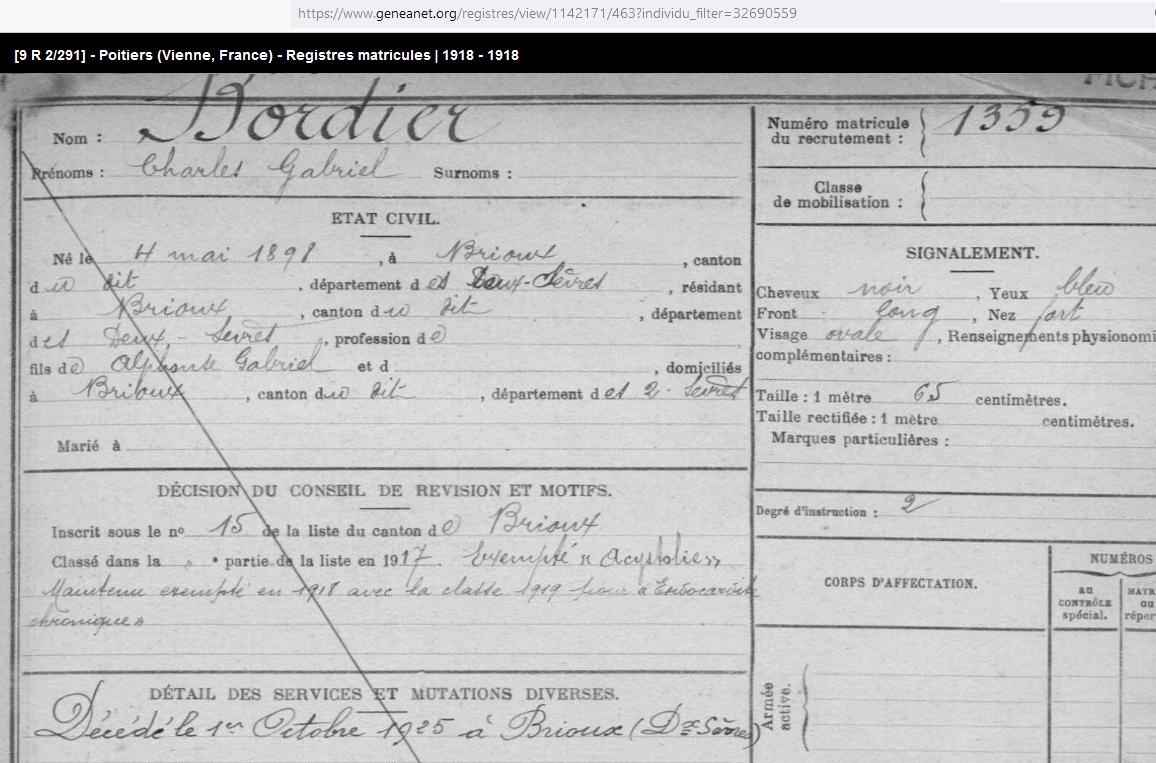 https://www.geneanet.org/registres/view/1142171/463?individu_filter=32690559
[9 R 2/291] - Poitiers (Vienne, France) - Registres matricules | 1918 - 1918
FICH
Nom : Bordier
Prénoms : Charles Gabriel Surnoms :
Numéro matricule du recrutement : 1359
Classe de mobilisation :
ETAT CIVIL.
Né le 4 mai 1898, à Brioux, canton
du dit, département des Deux-Sèvres, résidant
à Brioux, canton du dit, département
des Deux-Sevres, profession de
fils de Alphonse Gabriel et d , domiciliés
à Brioux, canton du dit, département des 2-Sevres
Marié à
SIGNALEMENT.
Cheveux noir, Yeux bleu
Front long, Nez fort
Visage ovale, Renseignements physionomi
complémentaires :
Taille : 1 mètre 65 centimètres.
Taille rectifiée : 1 mètre centimètres.
Marques particulières :
Degré d'instruction : 2
DÉCISION DU CONSEIL DE REVISION ET MOTIFS.
Inscrit sous le nº 15 de la liste du canton de Brioux
Classé dans la " e partie de la liste en 1917. Exempté « Acystolie »
Maintenu exempté en 1918 avec la classe 1919 pour « Endocardite
chronique »
DÉTAIL DES SERVICES ET MUTATIONS DIVERSES.
Décédé le 1er Octobre 1925 à Brioux (Dx Sèvres)
CORPS D'AFFECTATION.
NUMÉROS
au
CONTRÔLE
spécial.
MATR
ou
réper
Armée
active.